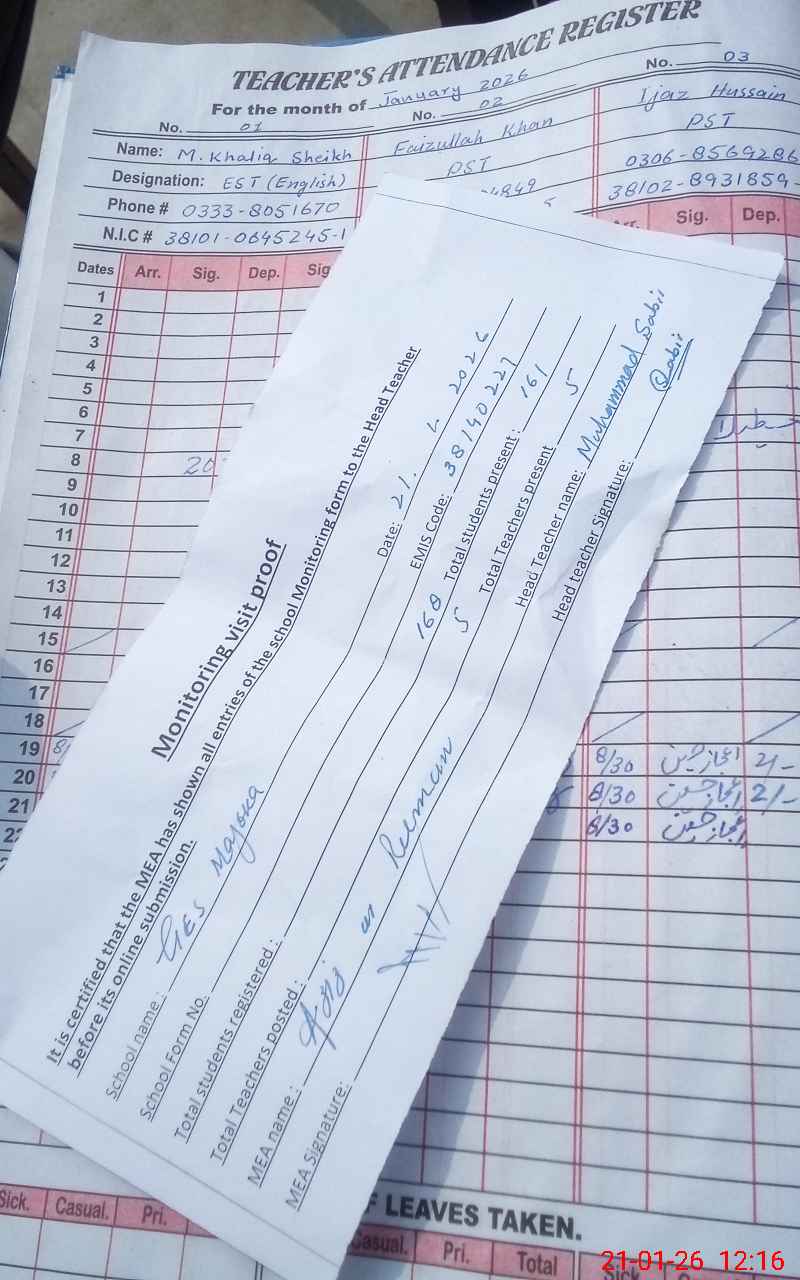 TEACHER'S ATTENDANCE REGISTER
For the month of January 2026
No. 01
No. 02
No. 03
Name: M. Khaliq Sheikh
Faizullah Khan
Ijaz Hussain
Designation: EST (English)
PST
PST
Phone # 0333-8051670
4849
0306-8569286
N.I.C # 38101-0645245-1
38102-8931859-
Dates Arr. Sig. Dep. Sig
Arr. Sig. Dep.
1
2
3
4
5
6
7
8
9
10
11
12
13
14
15
16
17
18
19
20
21
22
8/30 اعجاز حسین 2/-
8/30 اعجاز حسین 2/-
8/30 اعجاز حسین
Monitoring visit proof
It is certified that the MEA has shown all entries of the school Monitoring form to the Head Teacher
before its online submission.
School name: GES Majoka
Date: 21. 1. 2026
School Form No.
EMIS Code: 38140227
Total students registered: 168
Total students present: 161
Total Teachers posted: 5
Total Teachers present 5
MEA name: ur Rehman
Head Teacher name: Muhammad Sabir
MEA Signature:
Head teacher Signature: Sabir
Sick. Casual. Pri.
F LEAVES TAKEN.
Casual. Pri. Total Sick
21-01-26 12:16